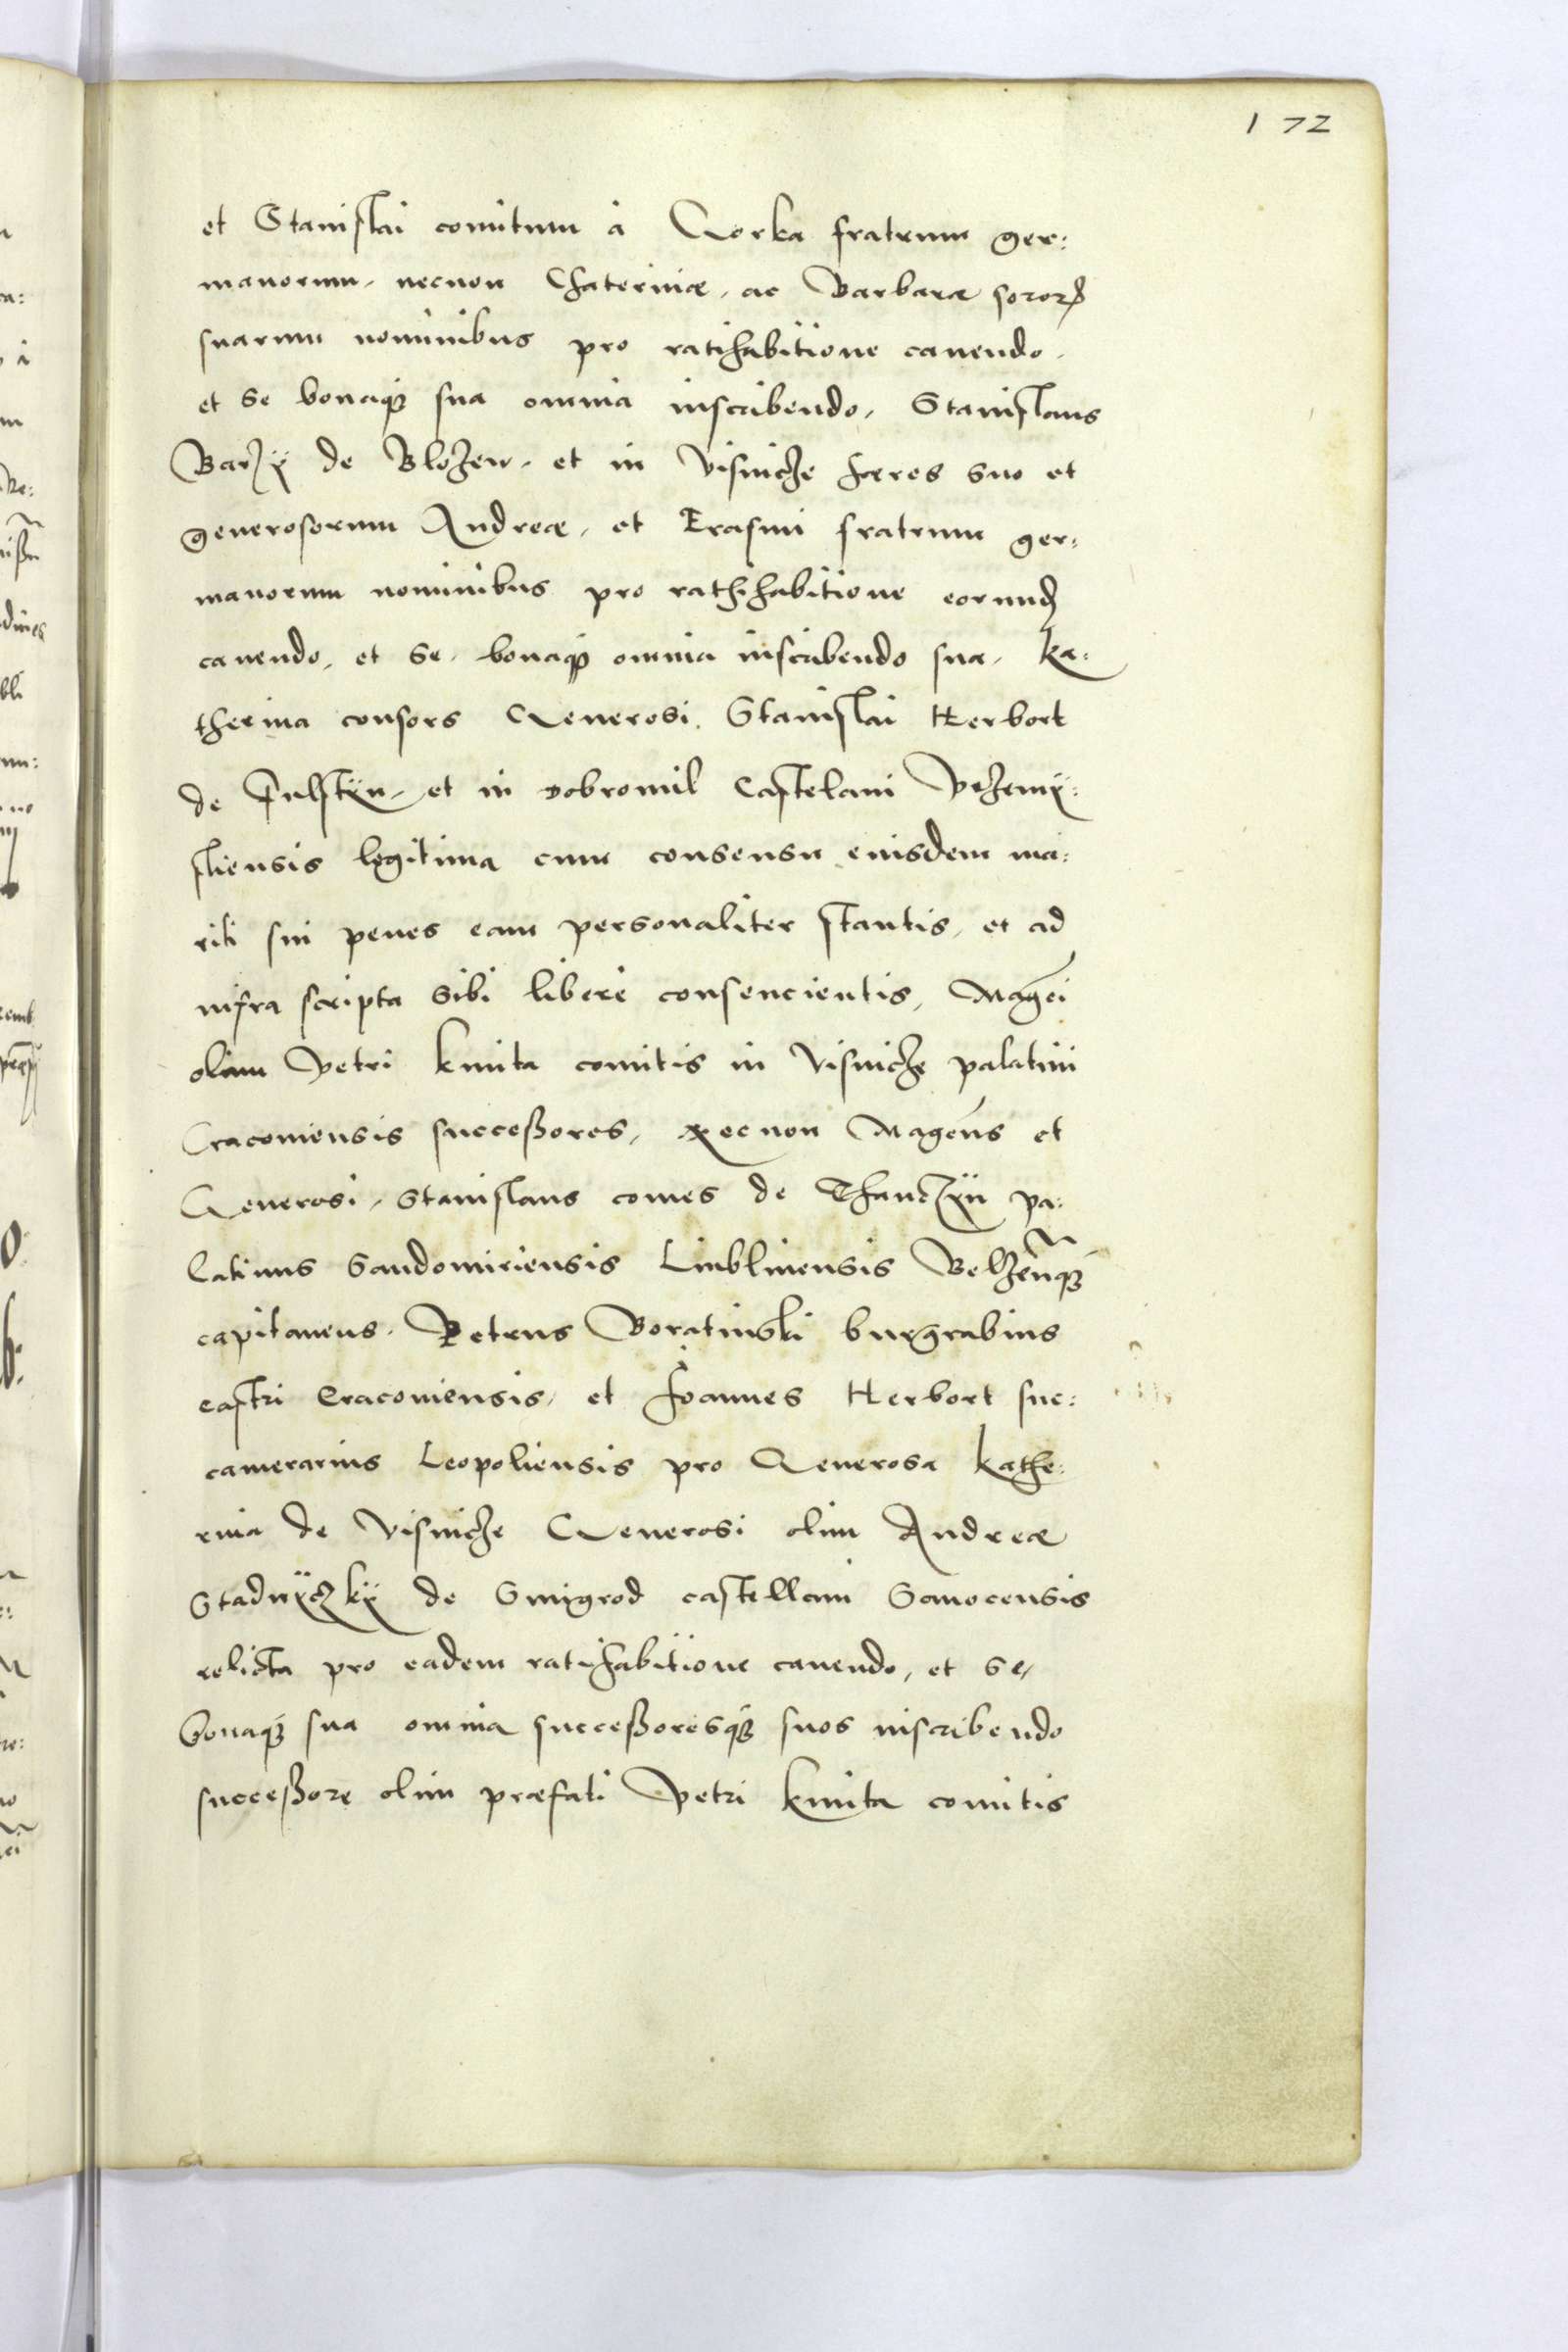 172
et Stanislai comitum à Gorka fratrum ger:
manorum, necnon Chaterinæ, ac Barbaræ soror&#42845;
suarum nominibus pro ratihabitione cauendo,
et se bonaqȝ sua omnia inscribendo, Stanislaus
Barzÿ de Blozew, et in Visnicze hæres suo et
generosorum Andreæ, et Erasmi fratrum ger:
manorum nominibus pro rathihabitione eorund&#42845;
cauendo, et se, bonaqȝ omnia inscribendo sua, Ka:
therina consors Generosi Stanislai Herbort
de Fulstÿn, et in Dobromil Castelani Przemÿ:
sliensis legitima cum consensu eiusdem ma:
riti sui penes eam personaliter stantis, et ad
infra scripta sibi libere consencientis, Magci
olim Petri Kmita comitis in Visnicze palatini
Cracouiensis successores, necnon Magcus et
Generosi, Stanislaus comes de Thanczÿn pa:
latinus Sandomiriensis Liublinensis Belzenqȝ
capitaneus, Petrus Boratinski burgrabius
castri Cracouiensis, et Joannes Herbort suc:
camerarius Leopoliensis pro Generosa Kathe:
rina de Visnicze Generosi olim Andreæ
Stadnÿczkÿ de Smigrod castellani Sanocensis
relicta pro eadem ratihabitione cauendo, et se,
bonaqȝ sua omnia successoresqȝ suos inscribendo
successore olim præfati Petri Kmita comitis